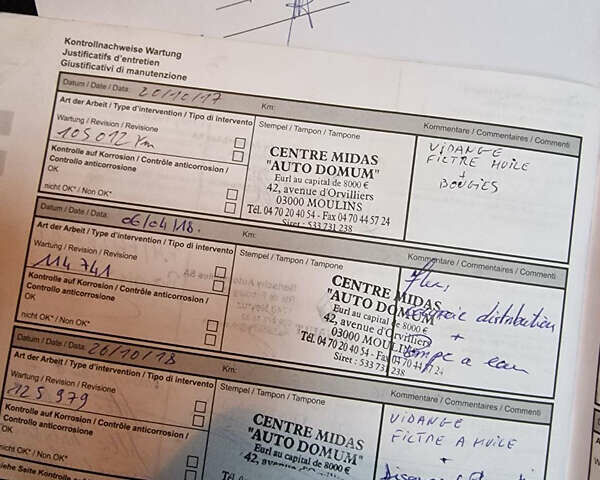 Kontrollnachweise Wartung
Justificatifs d'entretien
Giustificativi di manutenzione
Datum / Date / Data: 20/10/17 Km:
Art der Arbeit / Type d'intervention / Tipo di intervento
Wartung / Revision / Revisione
105 012 Km
Kontrolle auf Korrosion / Contrôle anticorrosion /
Controllo anticorrosione
OK
nicht OK* / Non OK*
Stempel / Tampon / Tampone
CENTRE MIDAS
"AUTO DOMUM"
Eurl au capital de 8000 €
42, avenue d'Orvilliers
03000 MOULINS
Tél. 04 70 20 40 54 - Fax 04 70 44 57 24
Siret : 533 731 238
Kommentare / Commentaires / Commenti
VIDANGE
FILTRE HUILE
+
BOUGIES
Datum / Date / Data: 06/04/18. Km:
Art der Arbeit / Type d'intervention / Tipo di intervento
Wartung / Revision / Revisione
114 741
Kontrolle auf Korrosion / Contrôle anticorrosion /
Controllo anticorrosione
OK
nicht OK* / Non OK*
Stempel / Tampon / Tampone
CENTRE MIDAS
"AUTO DOMUM"
Eurl au capital de 8000 €
42, avenue d'Orvilliers
03000 MOULINS
Tél. 04 70 20 40 54 - Fax 04 70 44
Siret : 533 731 238
Kommentare / Commentaires / Commenti
distribution
+
a eau
Datum / Date / Data: 26/10/18 Km:
Art der Arbeit / Type d'intervention / Tipo di intervento
Wartung / Revision / Revisione
125 979
Kontrolle auf Korrosion / Contrôle anticorrosion /
Controllo anticorrosione
OK
nicht OK* / Non OK*
Siehe Seite Kontrolle auf
Stempel / Tampon / Tampone
CENTRE MIDAS
"AUTO DOMUM"
Eurl au capital de 8000 €
42, avenue
Kommentare / Commentaires / Commenti
VIDANGE
FILTRE A HUILE
+